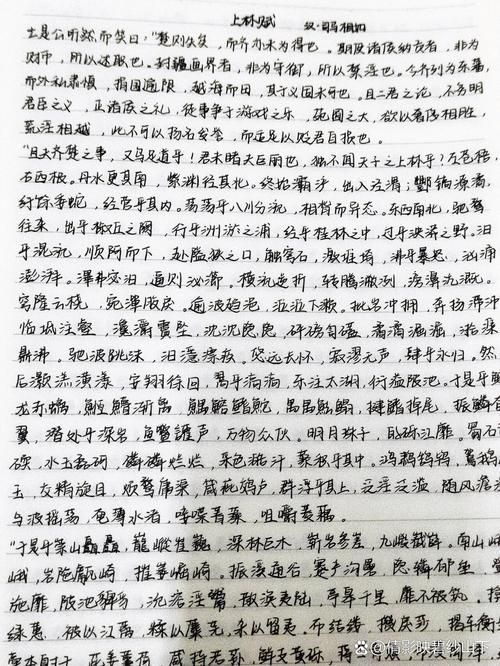 上林赋 汉·司马相如
亡是公听然而笑曰："楚则失矣，而齐亦未为得也。夫使诸侯纳贡者，非为
财币，所以述职也。封疆画界者，非为守御，所以禁淫也。今齐列为东蕃，
而外私肃慎，捐国逾限，越海而田，其于义固未可也。且二君之论，不务明
君臣之义，正诸侯之礼，徒事争于游戏之乐，苑囿之大，欲以奢侈相胜，
荒淫相越，此不可以扬名发誉，而适足以贬君自损也。
"且夫齐楚之事，又乌足道乎！君未睹夫巨丽也，独不闻天子之上林乎？左苍梧，
右西极。丹水更其南，紫渊径其北。终始灞浐，出入泾渭；酆镐潦潏，
纡馀委蛇，经营乎其内。荡荡乎八川分流，相背而异态。东西南北，驰骛
往来，出乎椒丘之阙，行乎洲淤之浦，经乎桂林之中，过乎泱漭之野。汩
乎混流，顺阿而下，赴隘狭之口，触穹石，激堆埼，沸乎暴怒，汹涌
澎湃。滭弗宓汩，逼侧泌瀄。横流逆折，转腾潎洌，滂濞沆溉。
穹隆云桡，宛潬胶戾。逾波趋浥，涖涖下濑。批岩冲拥，奔扬滞沛
临坻注壑，瀺灂霣坠，沈沈隐隐，砰磅訇礚，潏潏淈淈，湁潗
鼎沸。驰波跳沫，汩㶁漂疾。悠远长怀，寂漻无声，肆乎永归。然
后灏溔潢漾，安翔徐回，翯乎滈滈，东注太湖，衍溢陂池。于是乎蛟
龙赤螭，䱭䲛渐离，鰅鰫鳍鮀，禺禺魼鳎，揵鳍掉尾，振鳞奋
翼，潜处乎深岩，鱼鳖讙声，万物众伙。明月珠子，的砾江靡。蜀石黄
碝，水玉磊砢，磷磷烂烂，采色澔汗，藂积乎其中。鸿鹔鹄鸨，鴐鹅属
玉，交精旋目，烦鹜庸渠，箴疵䴔卢，群浮乎其上，泛淫泛滥，随风澹淡
与波摇荡，奄薄水渚，唼喋菁藻，咀嚼菱藕。
"于是乎崇山矗矗，巃嵷崔巍，深林巨木，崭岩参差，九嵕巀嶭。南山峨
峨，岩陁甗崎，摧崣崛崎。振溪通谷，蹇产沟渎，
施靡，陂池貏豸，沇溶淫鬻，散涣夷陆，亭皋千里，靡不被筑。
绿蕙，被以江蓠，糅以蘪芜，杂以留夷。布结缕，攒戾莎，揭车衡
倩影映碧纱山下